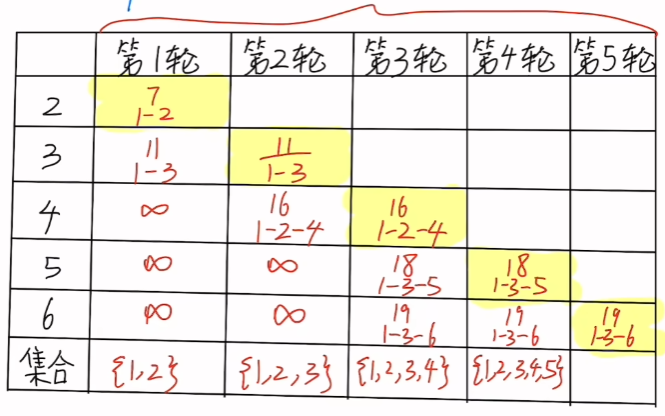 第1轮 第2轮 第3轮 第4轮 第5轮
2 7
1-2
3 11 11
1-3 1-3
4 ∞ 16 16
1-2-4 1-2-4
5 ∞ ∞ 18 18
1-3-5 1-3-5
6 ∞ ∞ 19 19 19
1-3-6 1-3-6 1-3-6
集合 {1,2} {1,2,3} {1,2,3,4} {1,2,3,4,5}